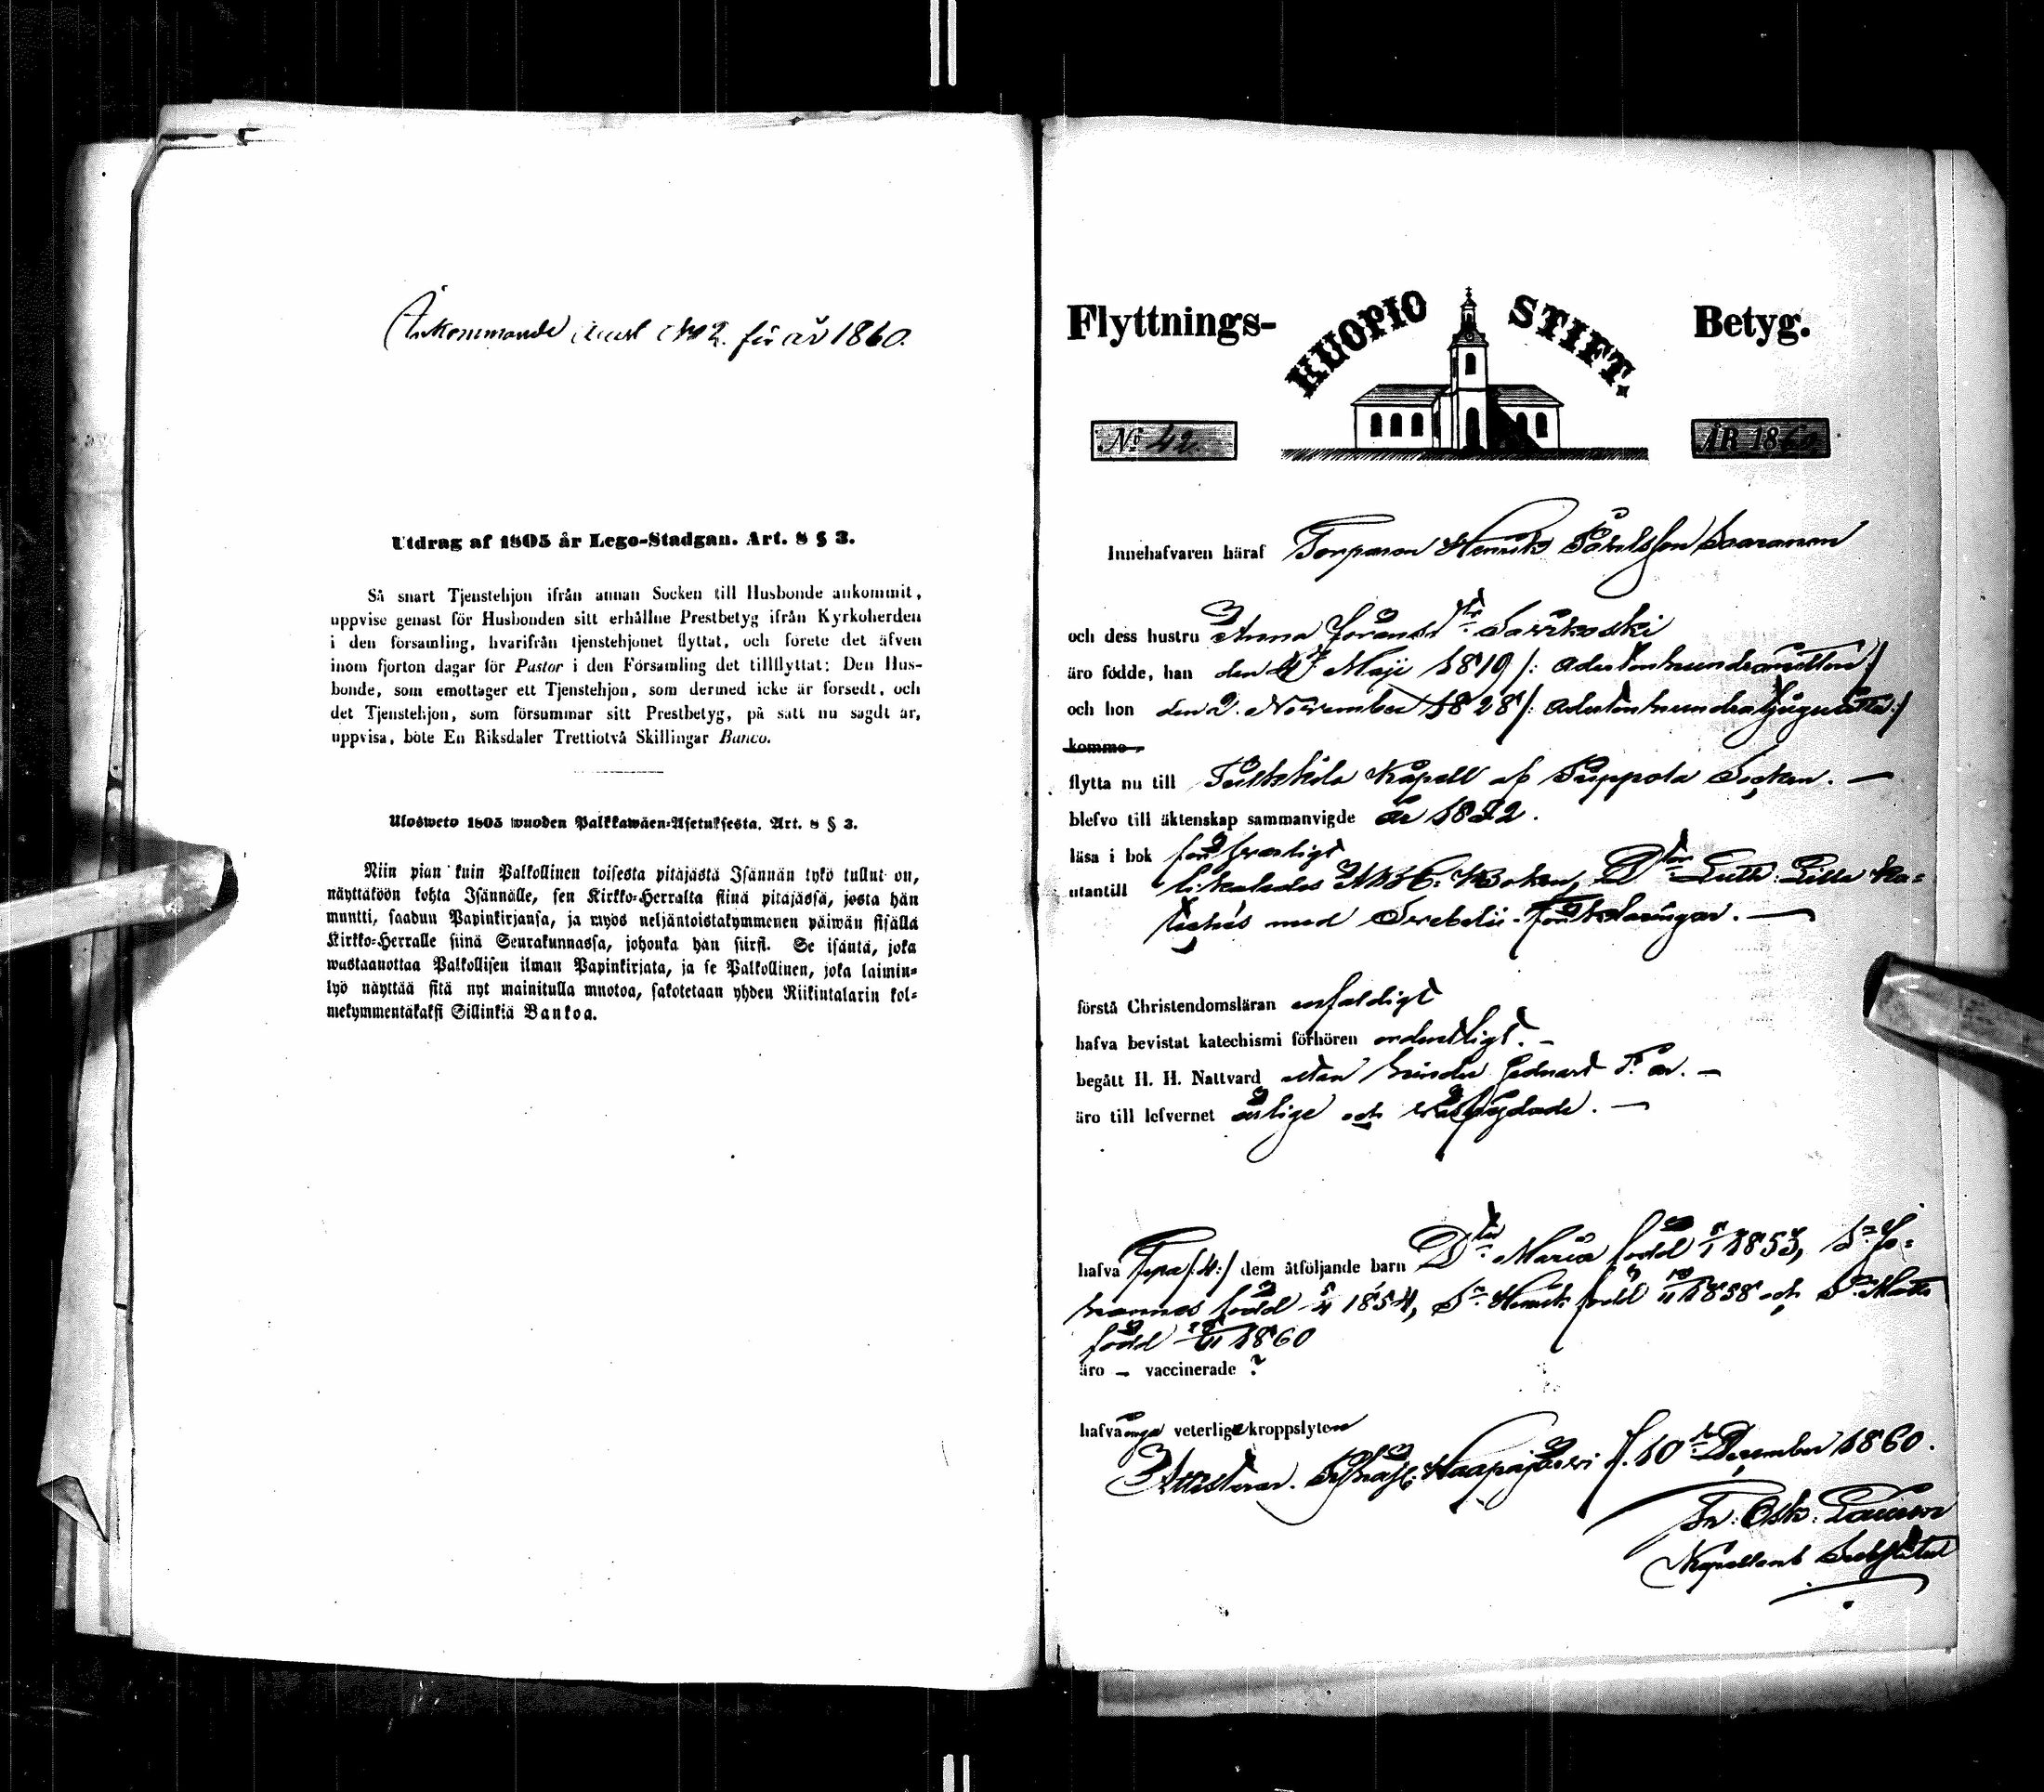 Ankommande Attest No 2. för år 1860.
Utdrag af 1805 år Lego-Stadgan. Art. 8 § 3.
Så snart Tjenstehjon ifrån annan Socken till Husbonde ankommit,
uppvise genast för Husbonden sitt erhållne Prestbetyg ifrån Kyrkoherden
i den församling, hvarifrån tjenstehjonet flyttat, och förete det äfven
inom fjorton dagar för Pastor i den Församling det tillflyttat: Den Hus-
bonde, som emottager ett Tjenstehjon, som dermed icke är försedt, och
det Tjenstehjon, som försummar sitt Prestbetyg, på sätt nu sagdt är,
uppvisa, böte En Riksdaler Trettiotvå Skillingar Banco.
Ulosweto 1805 wuoden Palkkawäen-Asetuksesta. Art. 8 § 3.
Niin pian kuin Palkollinen toisesta pitäjästä Isännän tykö tullut on,
näyttäköön kohta Isännälle, sen Kirkko-Herralta siinä pitäjässä, josta hän
muutti, saadun Papinkirjansa, ja myös neljäntoistakymmenen päiwän sisällä
Kirkko-Herralle siinä Seurakunnassa, johonka hän siirsi. Se isäntä, joka
wastaanottaa Palkollisen ilman Papinkirjata, ja se Palkollinen, joka laimin-
lyö näyttää sitä nyt mainitulla muotoa, sakotetaan yhden Riikintalarin kol-
mekymmentäkaksi Sillinkiä Bankoa.
Flyttnings- KUOPIO STIFT. Betyg.
No 42. ÅR 1860
Innehafvaren häraf Torparen Henrik Påhlsson Saaranen
och dess hustru Anna Göransdtr Sarikoski
äro födde, han den 27 Maji 1819 /: adertonhundranitton :/
och hon den 2. November 1828 /: adertonhundratjuguåtta :/
komme
flytta nu till Pulkkila Kapell af Piippola Socken. —
blefvo till äktenskap sammanvigde år 1852.
läsa i bok försvarligt
utantill likaledes ABC-Boken, Dtor Luth: Lilla Ka=
teches med Svebelii förklaringar. —
förstå Christendomsläran enfaldigt
hafva bevistat katechismi förhören ordentligt. —
begått H. H. Nattvard utan hinder
äro till lefvernet ärlige och välfrägdade. —
hafva fyra /: 4 :/ dem åtföljande barn Dtr Maria född 1853, Sn Jo=
hannes född 1854, Sn Henrik född 1858 och Sn Matts
född 1860
äro — vaccinerade ?
hafva inga veterlige kroppslyten
Attesterar. Haapajärvi d. 10 December 1860.
Fr: Osk:
Kapellans Substitut